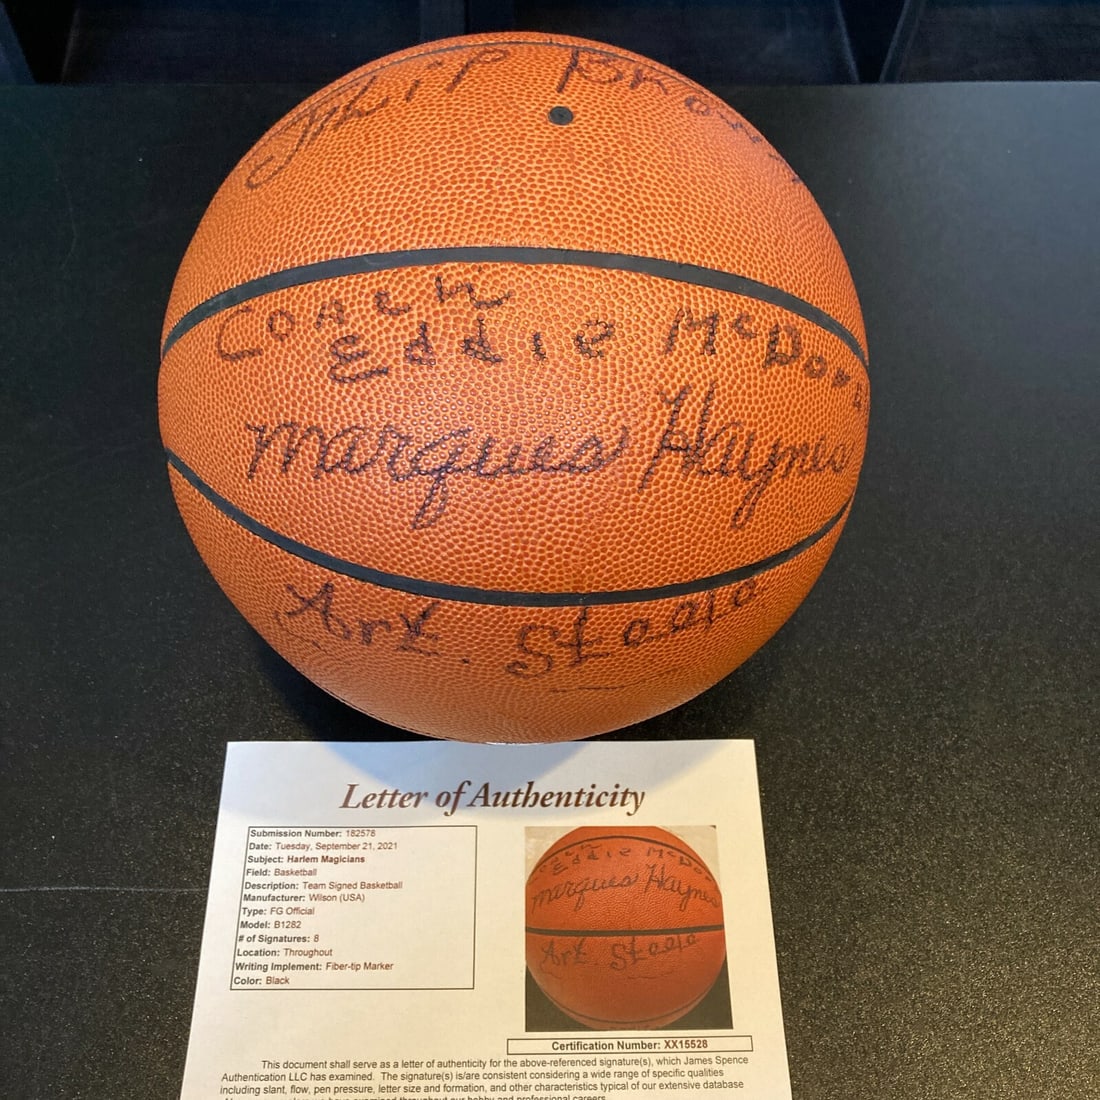 Philip Brown
Coach
Eddie McDon
Marques Haynes
Art. Stoolo
Letter of Authenticity
Submission Number: 182578
Date: Tuesday, September 21, 2021
Subject: Harlem Magicians
Field: Basketball
Description: Team Signed Basketball
Manufacturer: Wilson (USA)
Type: FG Official
Model: B1282
# of Signatures: 8
Location: Throughout
Writing Implement: Fiber-tip Marker
Color: Black
Coach
Eddie McDon
Marques Haynes
Art. Stoolo
Certification Number: XX15528
This document shall serve as a letter of authenticity for the above-referenced signature(s), which James Spence
Authentication LLC has examined. The signature(s) is/are consistent considering a wide range of specific qualities
including slant, flow, pen pressure, letter size and formation, and other characteristics typical of our extensive database
throughout our hobby and professional careers.